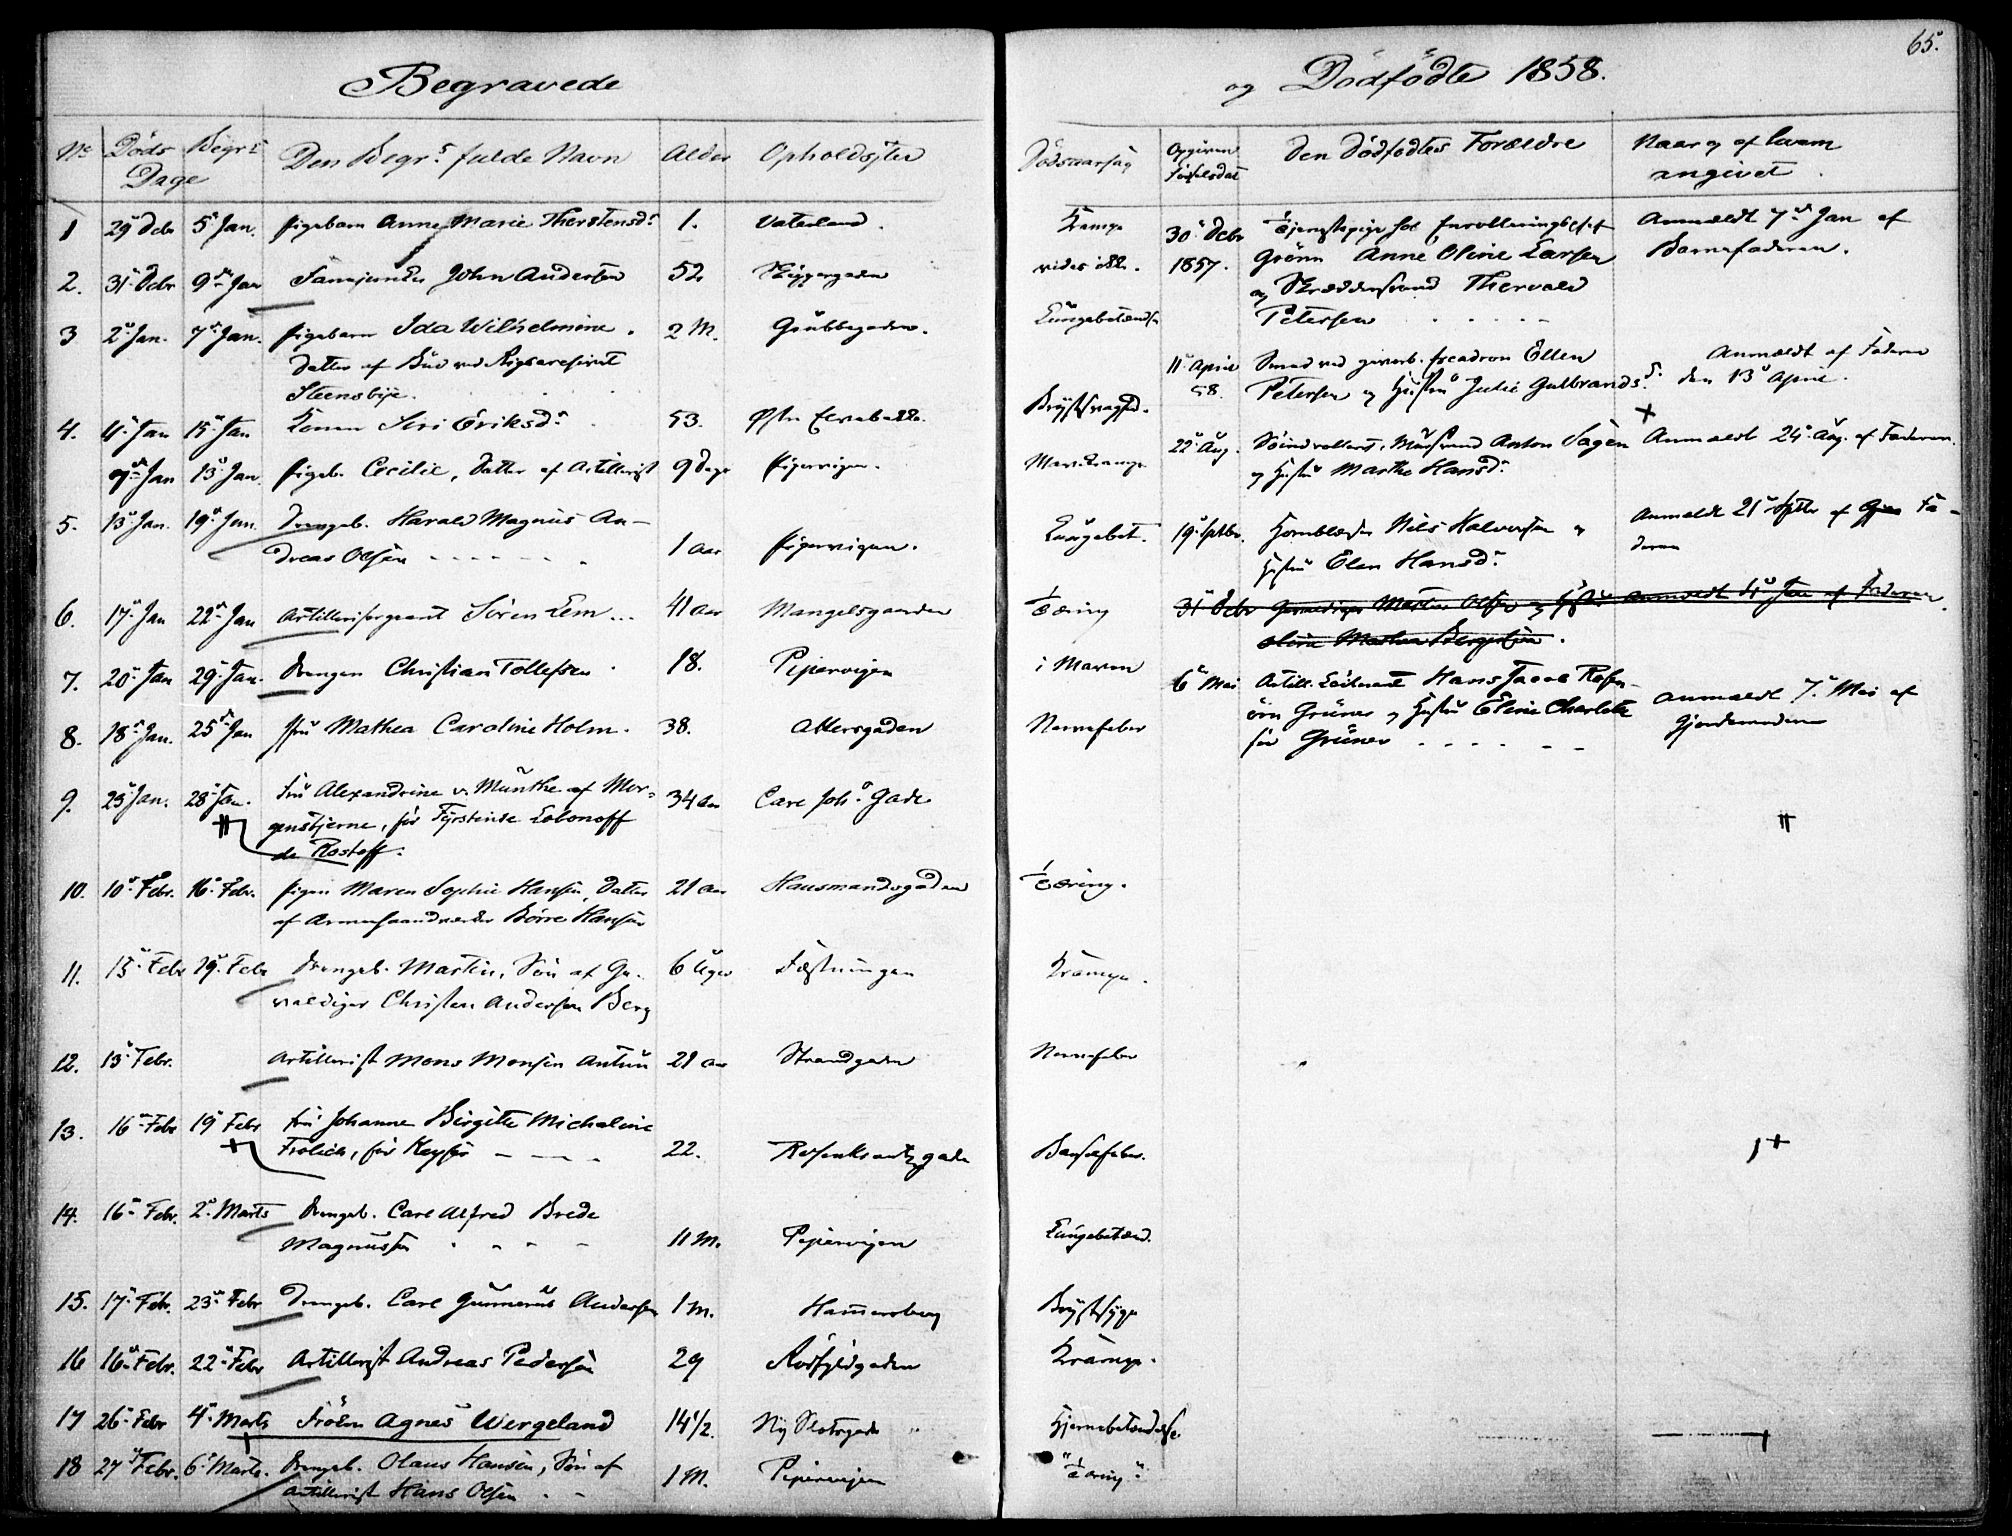 65.
Begravede
og Dödfödte 1858.
No Döds Begr.s Den Begr.s fulde Navn Alder Opholdssted
Dage
Dødsaarsag Opgiven Fødselsdat Den Dødfødtes Forældre Naar og af hvem
angivet
1 29 Debr 5 Jan. Pigebarn Anne Marie Thorstensd. 1. Vaterland.
2. 31 Debr 9 Jan John Andersen 52
3 2 Jan. 7 Jan. Pigebarn Ida Wilhelmine. 2 M. Grübbegaden.
Datter af Bud ved Rigsarchivet
Steensbye.
4. 4 Jan 15 Jan Konen Siri Eriksd. 53.
9 Jan 13 Jan. Pigeb. Cecilie, Datter af Artillerist 9 Dage Pipervigen.
5. 13 Jan. 19 Jan. Drengeb. Harald Magnus An-
dreas Olsen 1 aar Pipervigen.
6. 17 Jan 22 Jan Artillerisergeant Sören Lem 41 aar Mangelsgaarden
7. 20 Jan 29 Jan. Drengen Christian Tollefsen 18. Pipervigen
8. 18 Jan. 25 Jan Fru Mathea Caroline Holm. 38. Akersgaden
9. 23 Jan. 28 Jan. Fru Alexandrine v. Munthe af Mor-
genstjerne, för Fyrstinde Lobonoff
de Rostoff. 34 aar Carl Joh. Gade
10. 10 Febr. 16 Febr. Pigen Maren Sophie Hansen, Datter 21 aar Hausmandsgaden
af Börre Hansen
11. 15 Febr 19 Febr Drengeb. Martin, Sön af Ge- 6 Uger Fæstningen
valdiger Christen Andersen Berg
12. 13 Febr. Artillerist Mons Monsen 21 aar Strandgaden
13. 16 Febr 19 Febr Fru Johanne Birgitte Michaline
Frölich, för Keyser 22. Rosenkrantzgade
14. 16 Febr. 2 Marts Drengeb. Carl Alfred Brede
Magnussen 11 M. Pipervigen
15. 17 Febr. 23 Febr Drengeb. Carl Gunnerius Andersen 1 m. Hammersborg
16 16 Febr. 22 Febr Artillerist Andreas Pedersen 29 Rödfyldgaden
17 26 Febr 4 Marts Frökn Agnes Wergeland 14 1/2. Ny Slotsgade
18 27 Febr. 6 Marts. Drengeb. Olaus Hansen, Sön af
Artillerist Hans Olsen 1 M. Pipervigen
Krampe
vides ikke.
Lungebetændelse
Brystsvaghed.
Mavekrampe
Lungebet.
Tæring
i Maven
Nervefeber
Tæring.
Krampe.
Nervefeber
Barselfeber.
Lungebetænd.
Brystsyge
Krampe.
Hjernebetændelse
"Tæring".
30 Debr Tjenestepige hos Anmeldt 7 Jan af
1857. Grönn Anne Oline Larsen Barnefaderen.
og Skræddersvend Thorvald
Petersen
11 April Smed ved gevorb. Escadron Ellen Anmeldt af Faderen
58. Petersen og Hustru Julie Gulbrandsd. den 13 April.
22 Aug. Anton Sagen Anmeldt 24 Aug. af Faderen.
og Hustru Marthe Hansd.
19 Septbr. Hornblæser Nils Halvorsen og Anmeldt 21 Septbr af Fa-
Hustru Elen Hansd. deren
31 Debr Gevaldiger Martin Olsen og Hustru Anmeldt 4 Jan af Faderen.
Oline Mathea
6 Mai Artill. Løitnant Hans Jacob Rosen-
örn Grüner og Hustru Eline Charlotte Anmeldt 7 Mai af
för Grüner Gjordemoderen